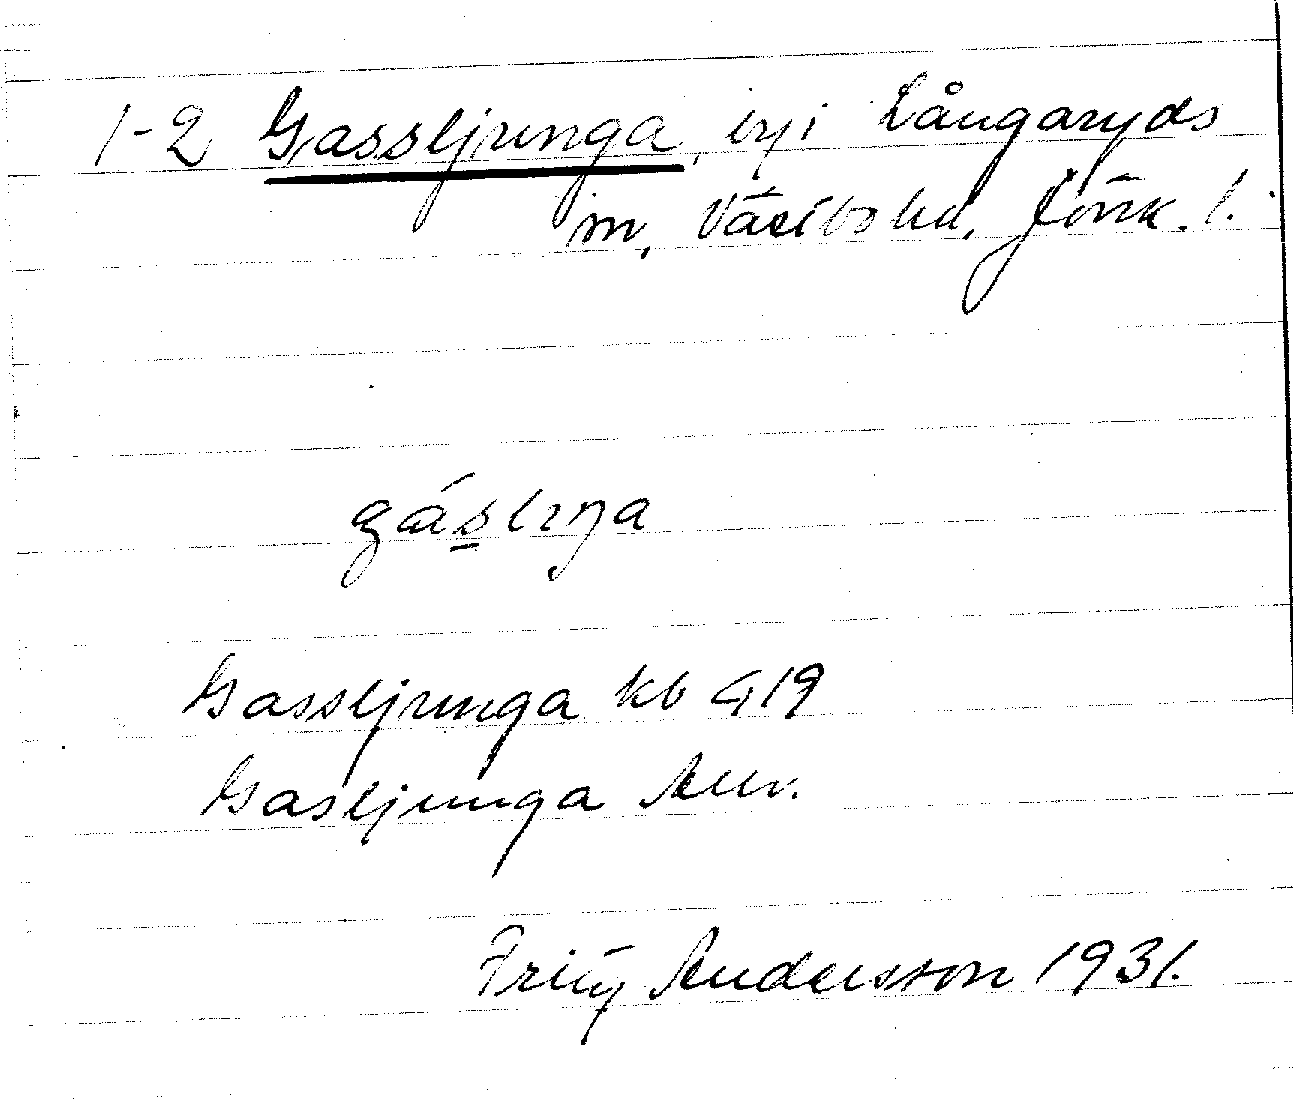 1-2 Gassljunga, by i Långaryds
sn, Västbo hd, Jönk. l.
gáslıŋa
Gassljunga kb G 19
Gasljunga
Andersson 1931.